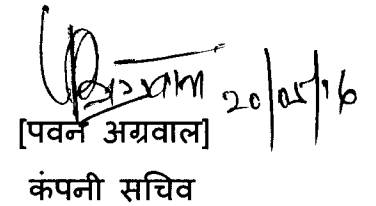 20/05/16
[पवन अग्रवाल]
कंपनी सचिव